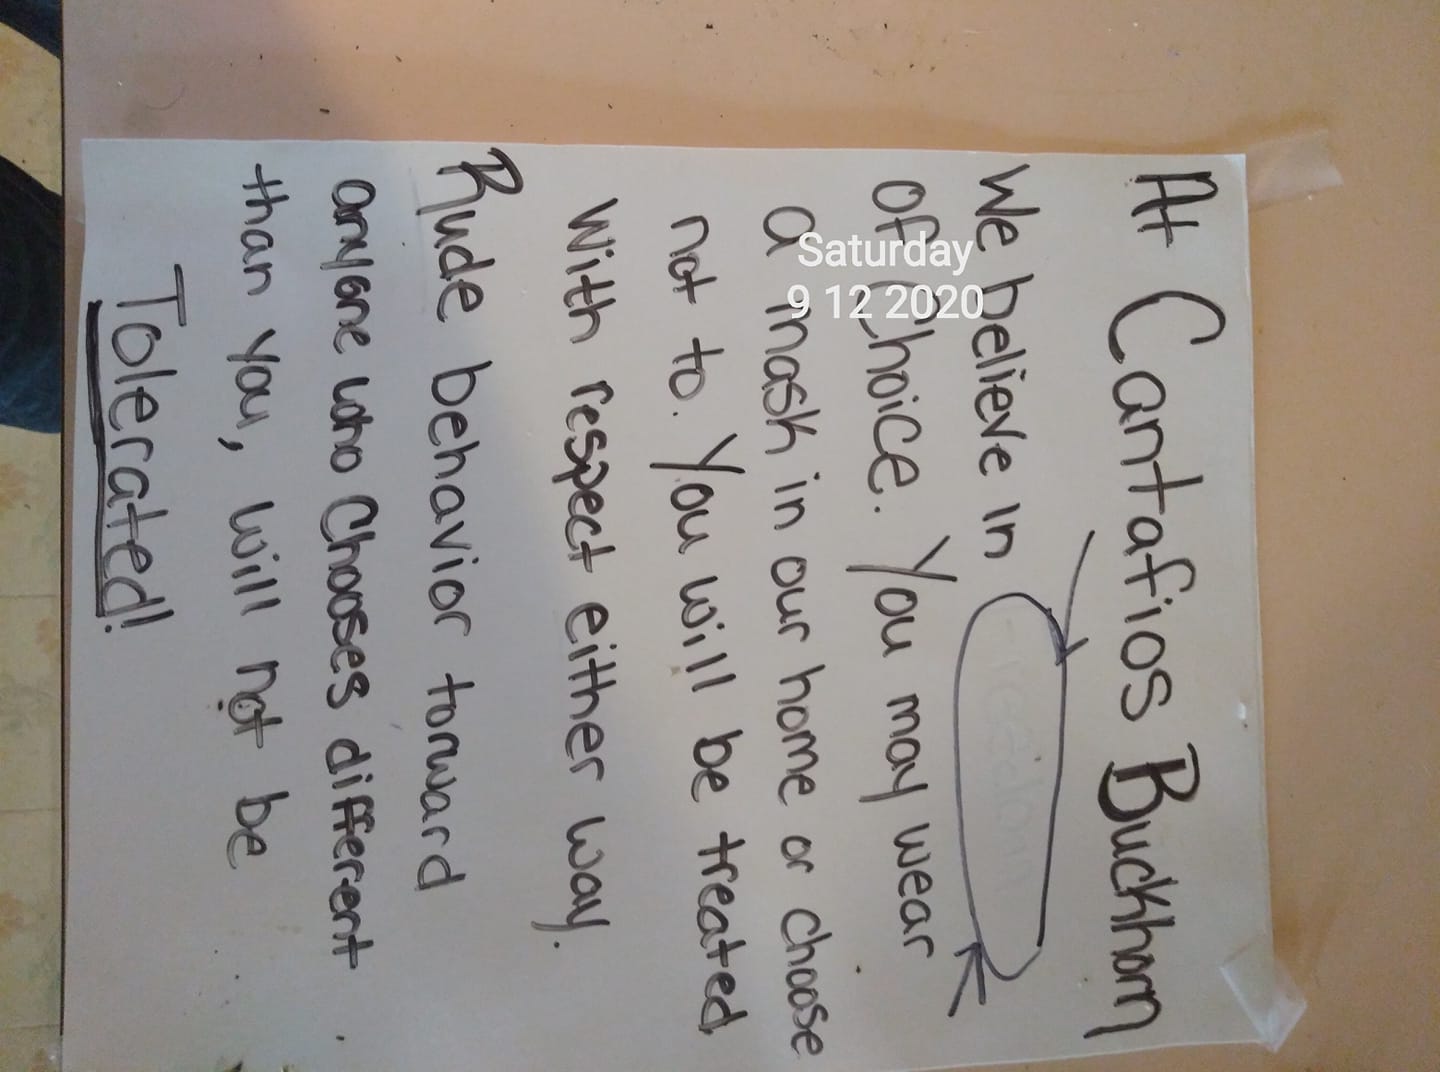 At Cantafios Buckhorn
We believe in freedom
of Choice. You may wear
a mask in our home or choose
not to. You will be treated
with respect either way.
Rude behavior torward
anyone who Chooses different
than you, will not be
Tolerated!
Saturday
9 12 2020